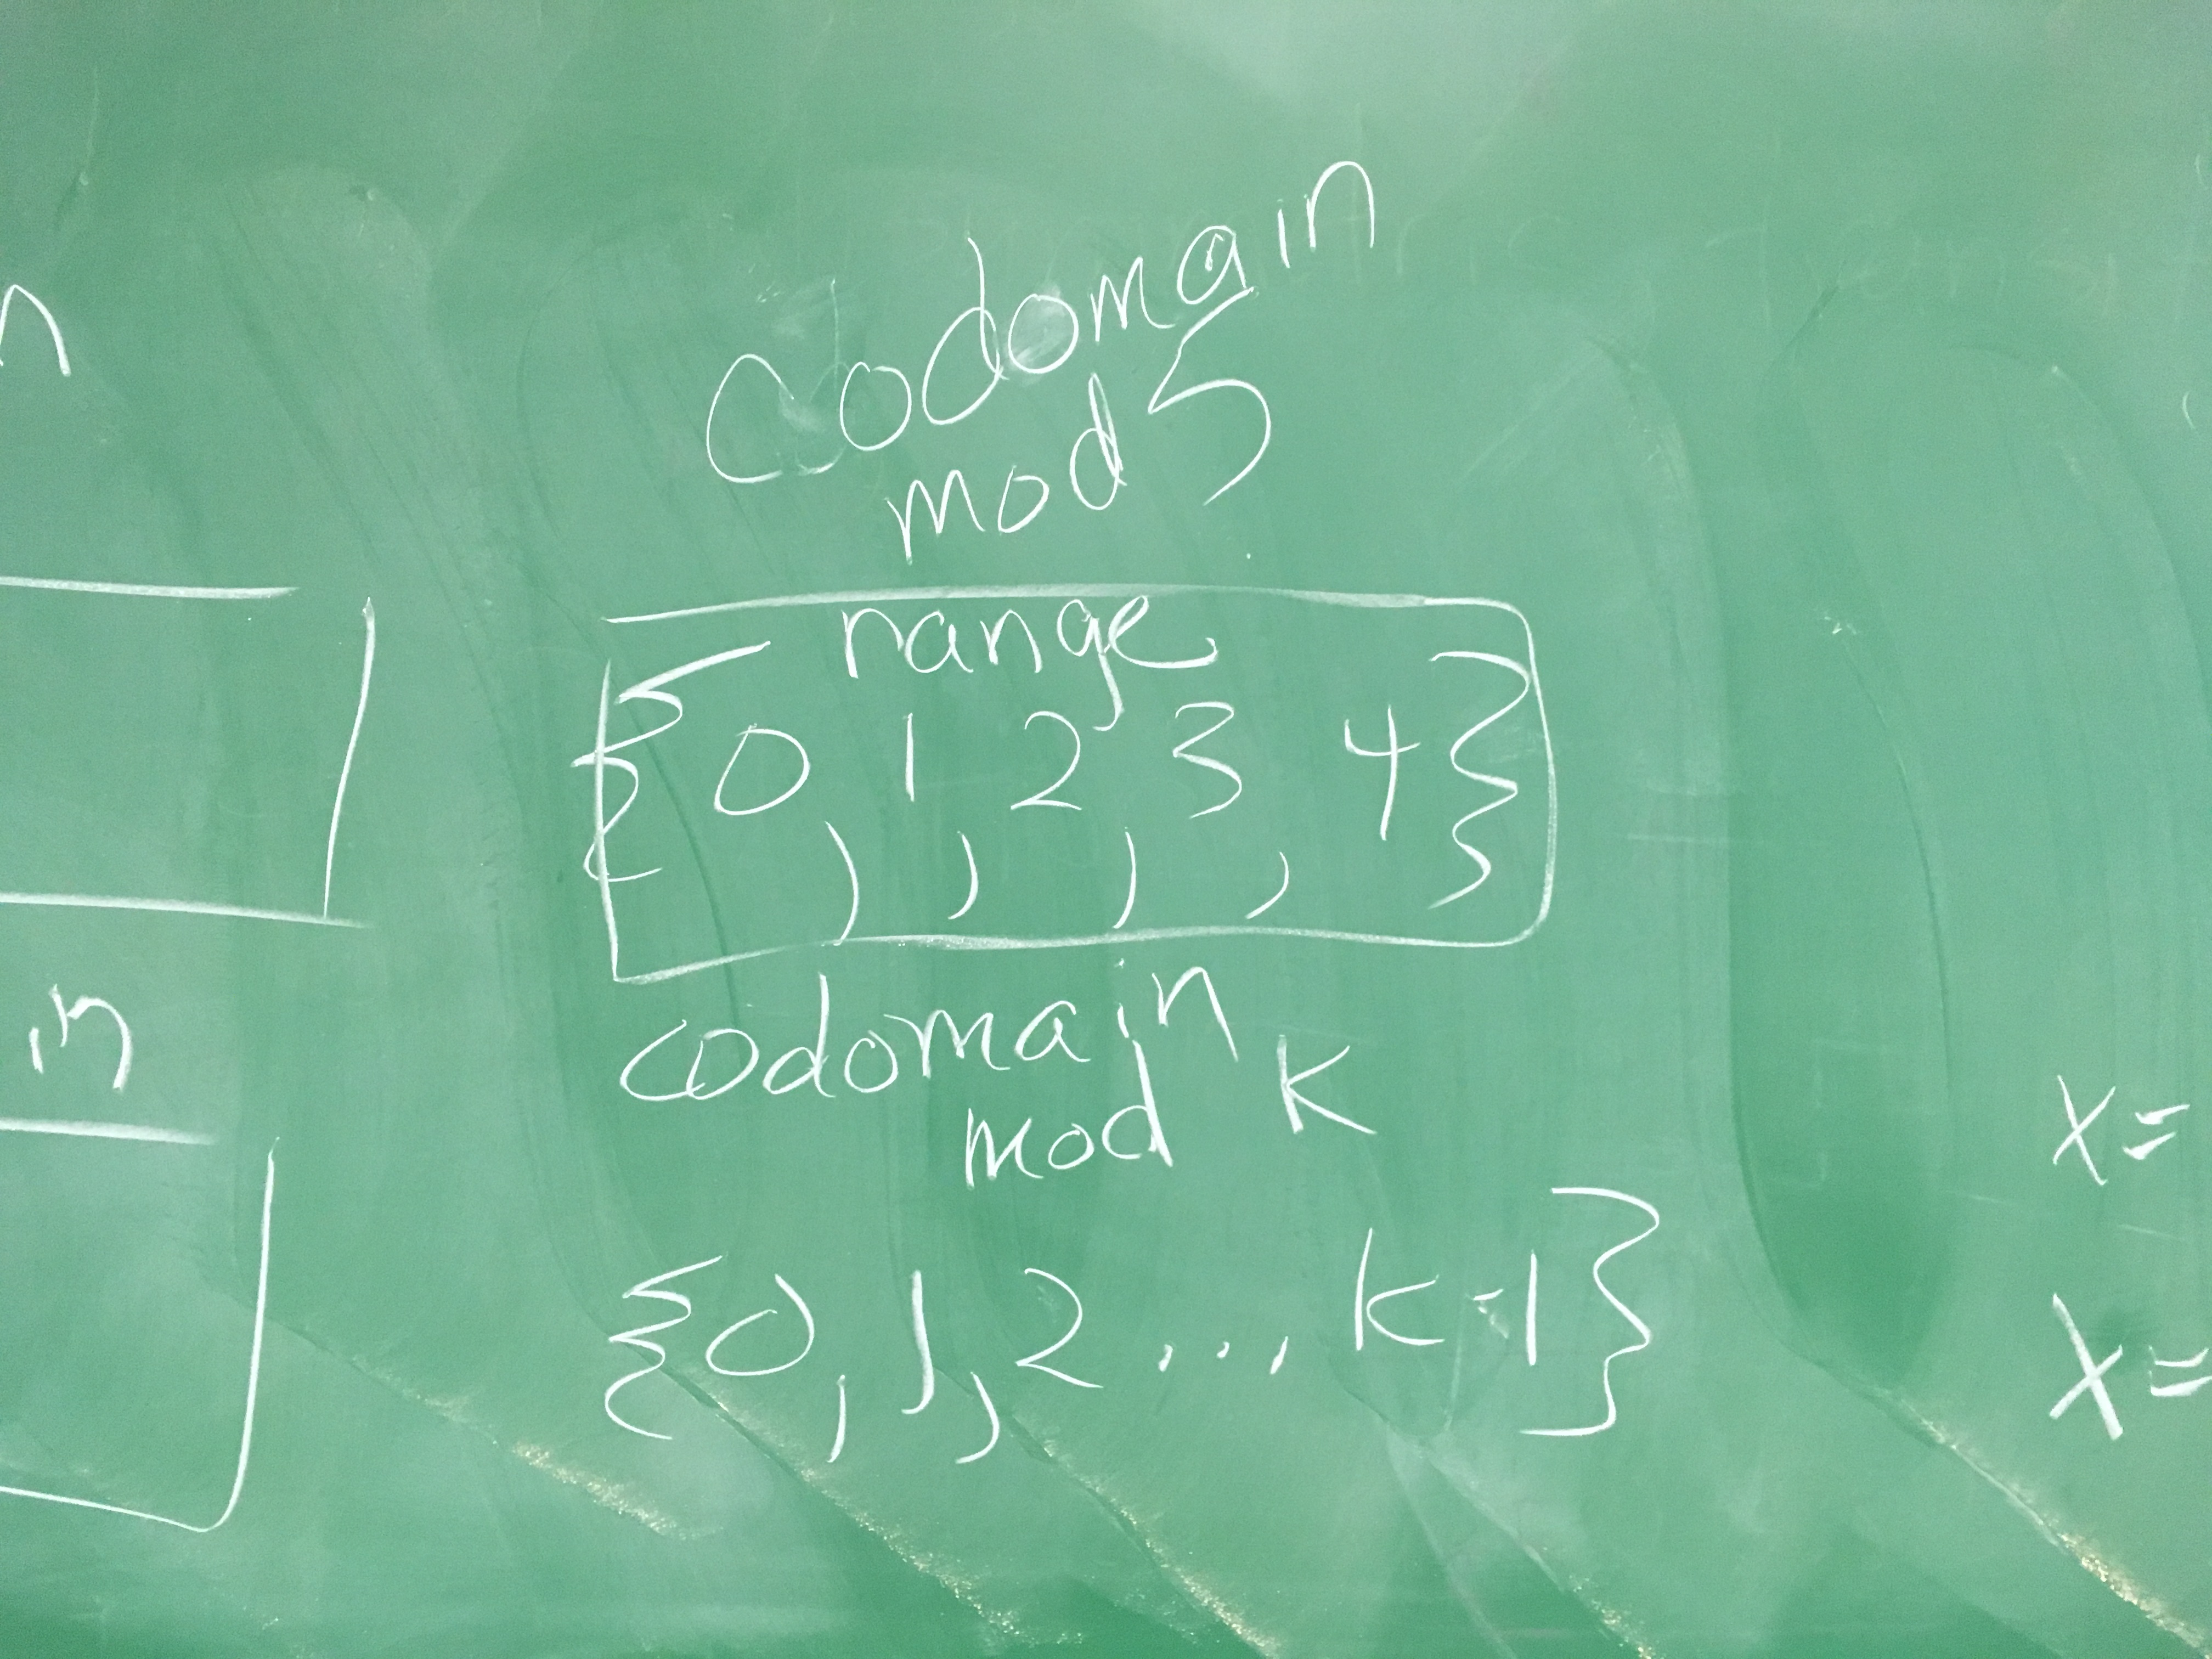 n
codomain
mod 5
range
{ 0, 1, 2, 3, 4 }
in
codomain
mod K
{0, 1, 2 ... K-1}
x=
x=